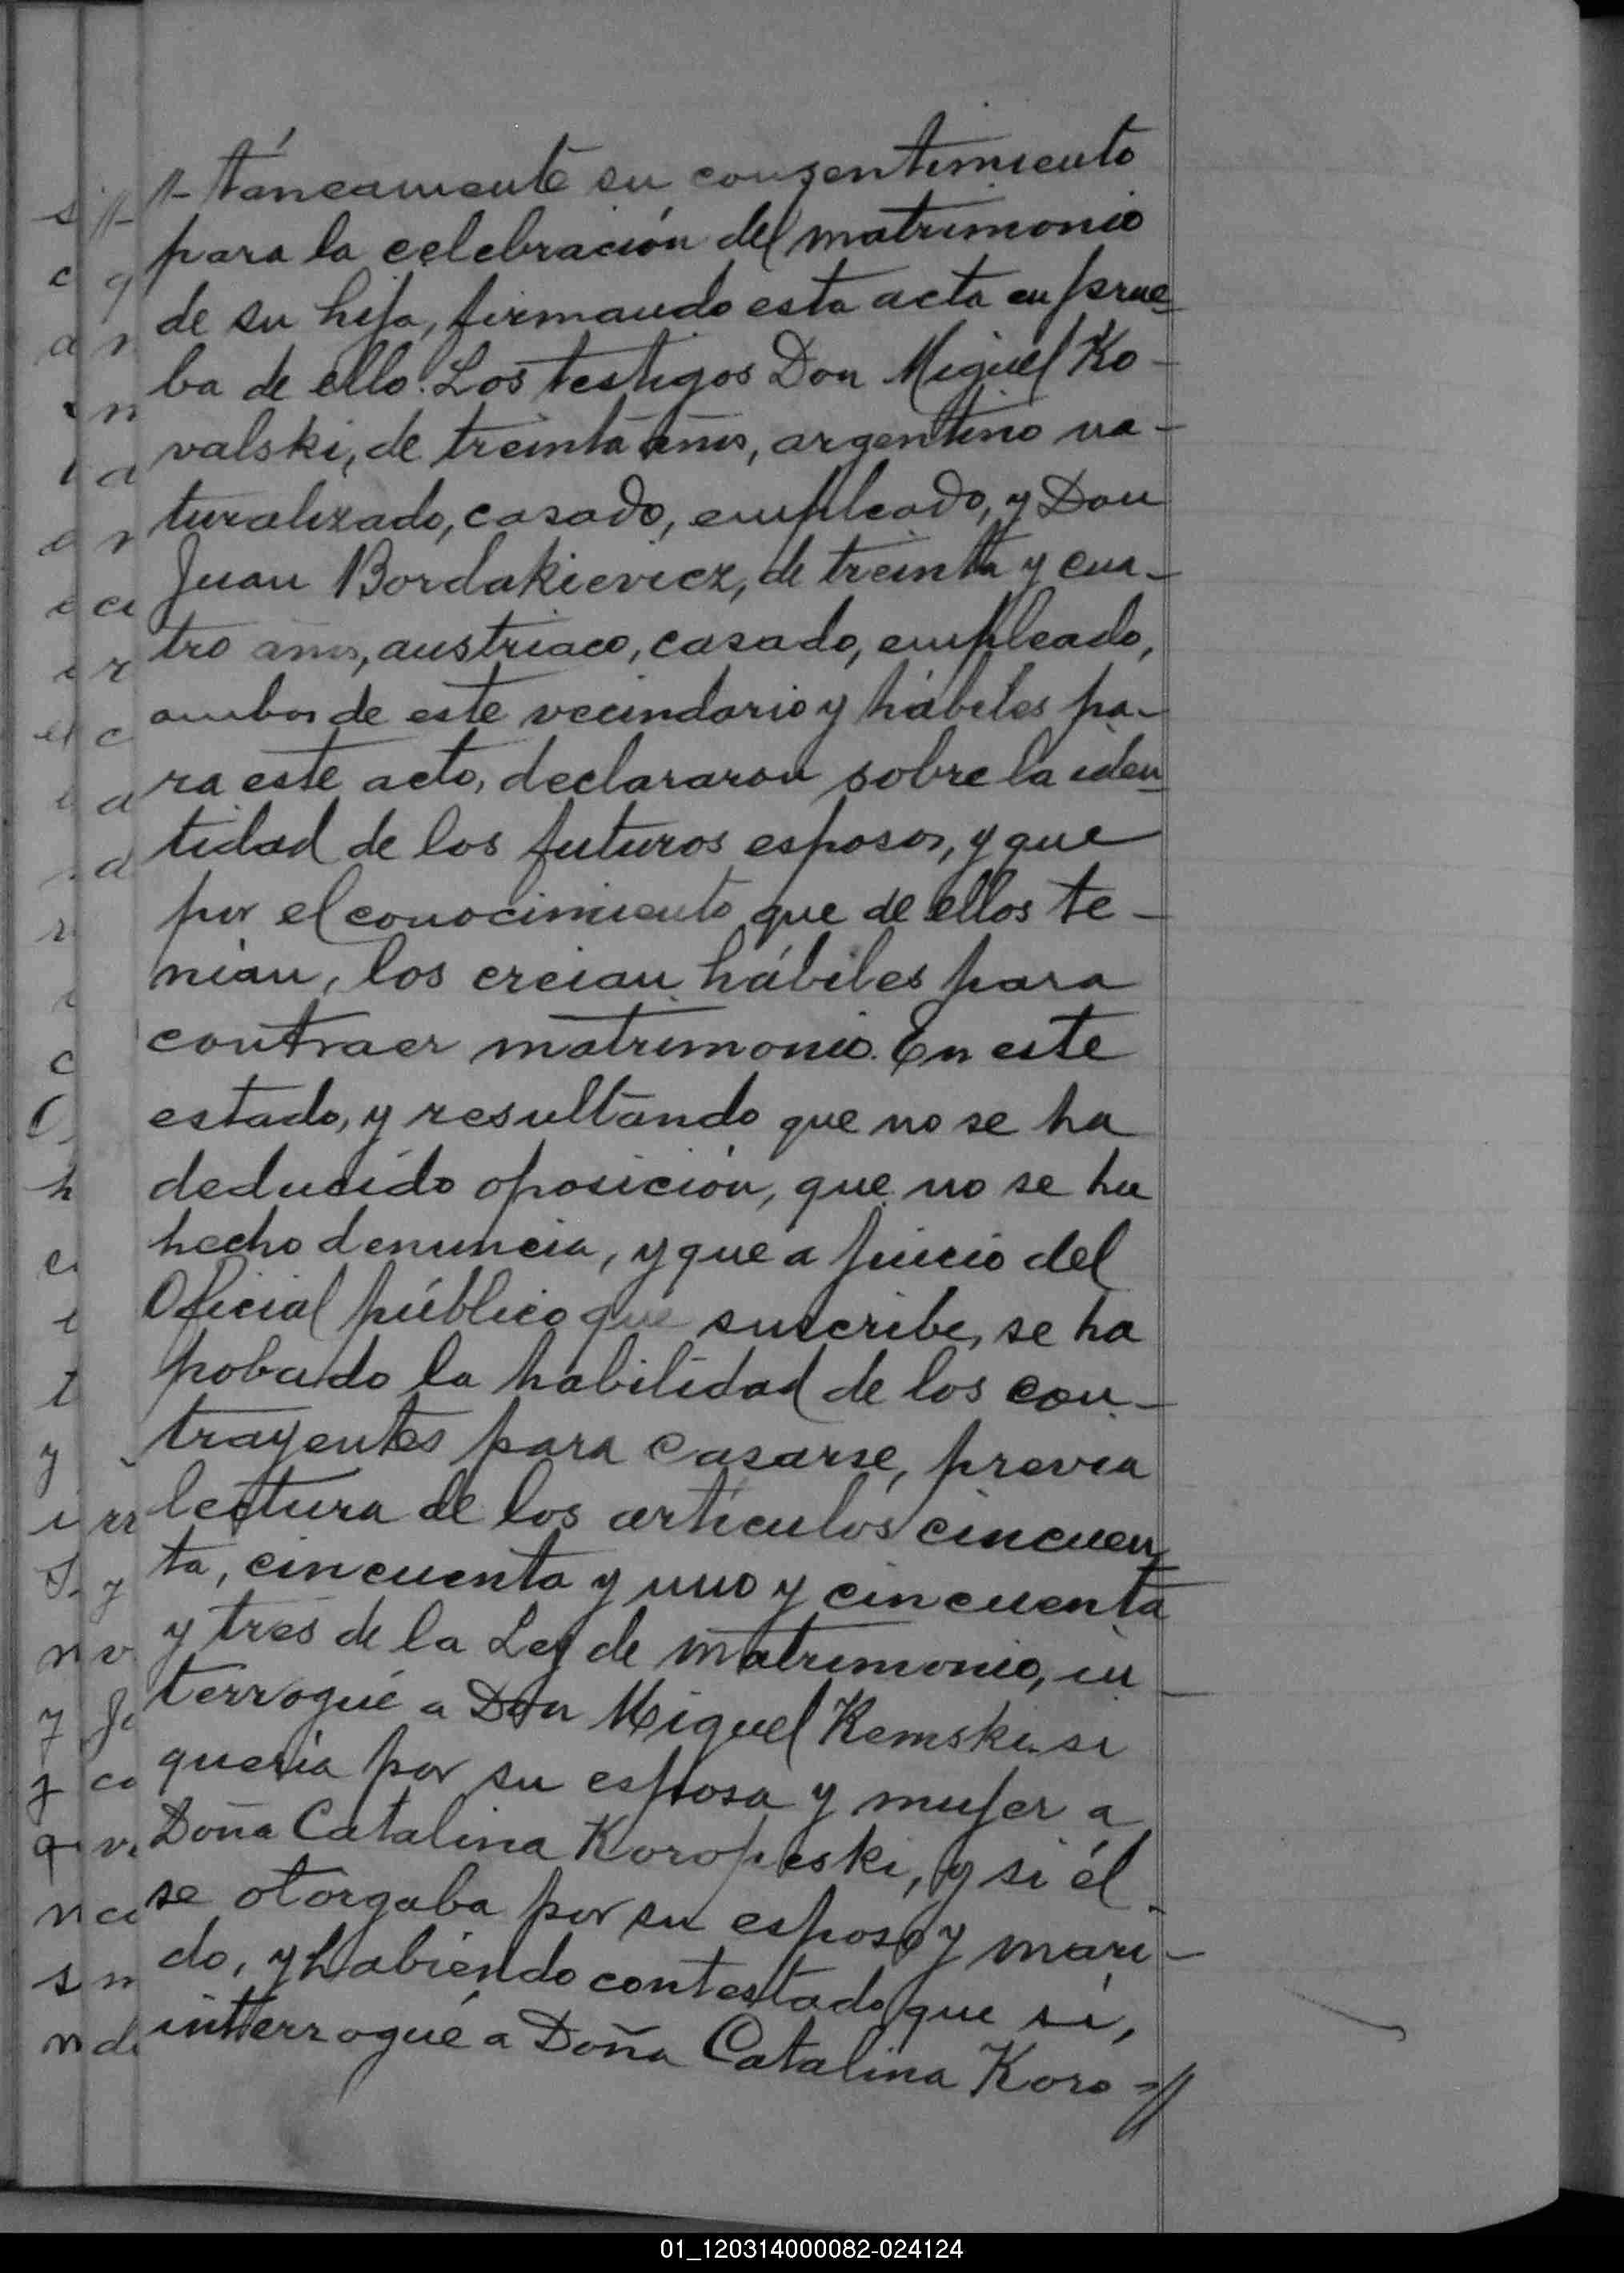 //- táneamente su consentimiento
para la celebración del matrimonio
de su hija, firmando esta acta en prue-
ba de ello. Los testigos Don Miguel Ko-
valski, de treinta años, argentino na-
turalizado, casado, empleado, y Don
Juan Bordakievicz, de treinta y cua-
tro años, austriaco, casado, empleado,
ambos de este vecindario y hábiles pa-
ra este acto, declararon sobre la iden-
tidad de los futuros esposos, y que
por el conocimiento que de ellos te-
nian, los creian hábiles para
contraer matrimonio. En este
estado, y resultando que no se ha
deducido oposición, que no se ha
hecho denuncia, y que a juicio del
Oficial público que suscribe, se ha
pobado la habilidad de los con-
trayentes para casarse, previa
lectura de los artículos cincuen-
ta, cincuenta y uno y cincuenta
y tres de la Ley de matrimonio, in-
terrogué a Don Miguel Kemski si
queria por su esposa y mujer a
Doña Catalina Koropeski, y si él
se otorgaba por su esposo y mari-
do, y habiendo contestado que si,
interrogué a Doña Catalina Koro-//
01_120314000082-024124